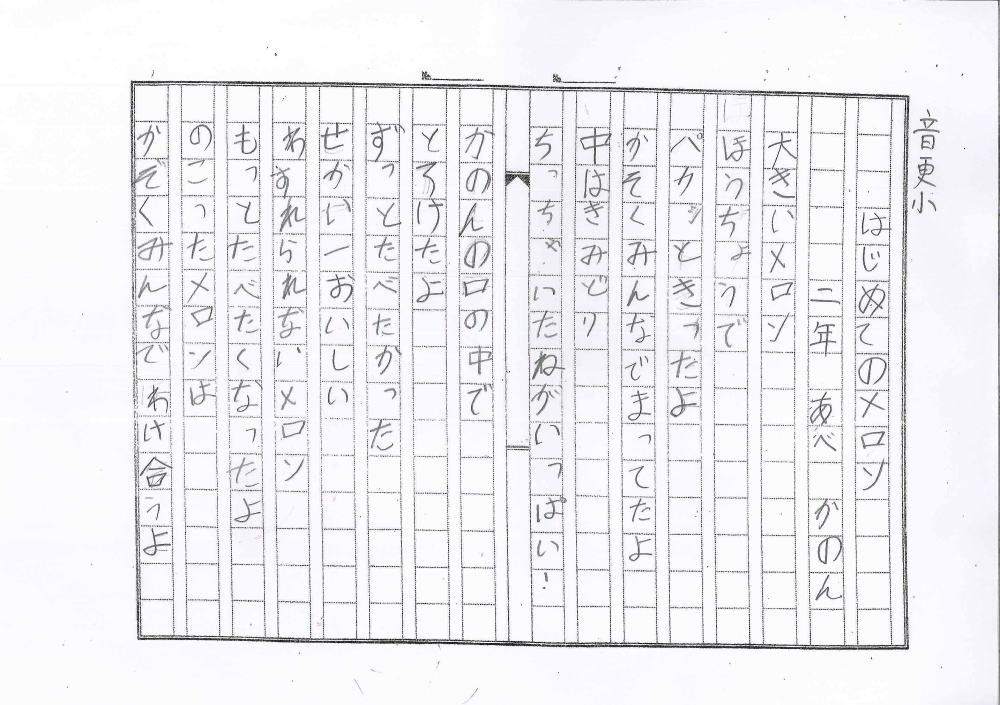 音更小
はじめてのメロン
二年 あべ かのん
大きいメロン
ほうちょうで
パカッときったよ
かぞくみんなでまってたよ
中はきみどり
ちっちゃいたねがいっぱい!
かのんの口の中で
とろけたよ
ずっとたべたかった
せかい一おいしい
わすれられないメロン
もっとたべたくなったよ
のこったメロンは
かぞくみんなでわけ合うよ
№
№